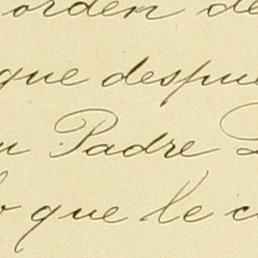 orden de
que despu
Padre
que le